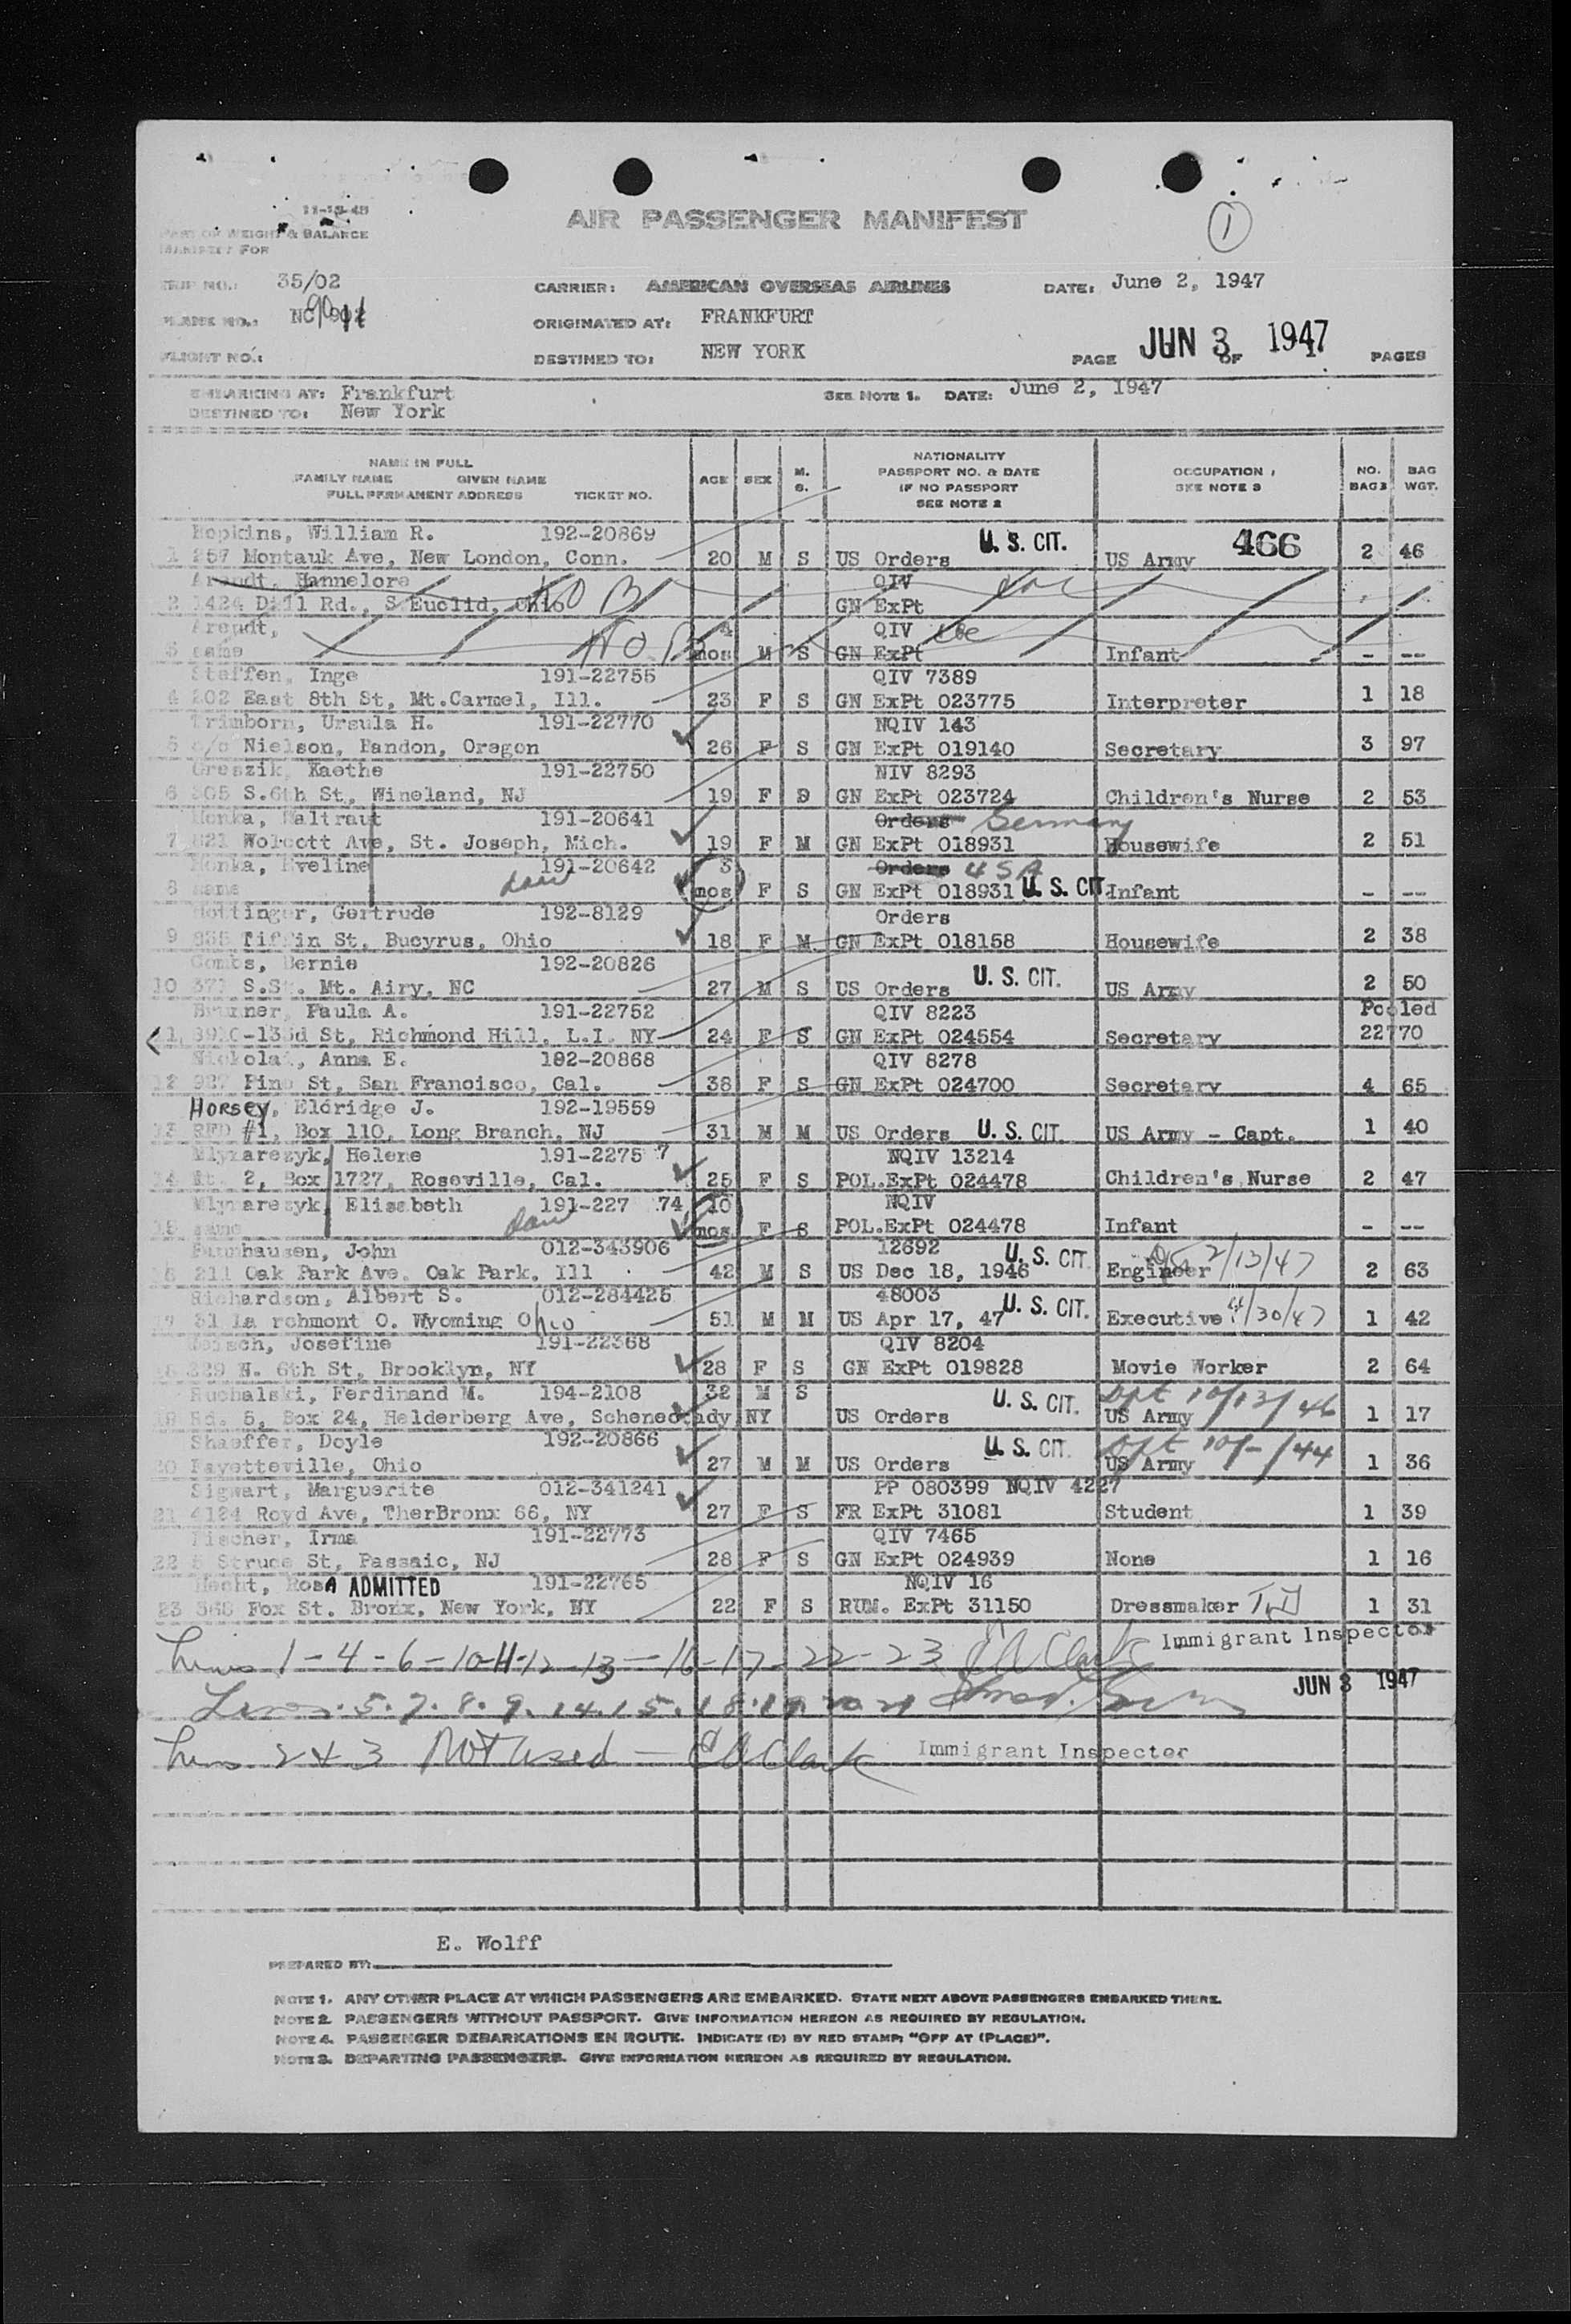 11-15-45
PART OF WEIGHT & BALANCE
MANIFEST FOR
AIR PASSENGER MANIFEST
1
TRIP NO.: 35/02
CARRIER: AMERICAN OVERSEAS AIRLINES
DATE: June 2, 1947
PLANE NO.: NC
ORIGINATED AT: FRANKFURT
FLIGHT NO.:
DESTINED TO: NEW YORK
PAGE JUN 3 1947 OF 1 PAGES
EMBARKING AT: Frankfurt
SEE NOTE 1. DATE: June 2, 1947
DESTINED TO: New York
NAME IN FULL
FAMILY NAME GIVEN NAME
FULL PERMANENT ADDRESS TICKET NO.
AGE SEX M. S.
NATIONALITY
PASSPORT NO. & DATE
IF NO PASSPORT
SEE NOTE 2
OCCUPATION
SEE NOTE 3
NO. BAGS
BAG WGT.
Hopkins, William R. 192-20869 U. S. CIT. 466
1 257 Montauk Ave, New London, Conn. 20 M S US Orders US Army 2 46
Arendt, Hannelore QIV
2 1424 Dill Rd., S Euclid, Ohio NO B GN ExPt
Arendt, 4 QIV
3 same NO B mos M S GN ExPt Infant - --
Steffen, Inge 191-22755 QIV 7389
4 202 East 8th St, Mt.Carmel, Ill. 23 F S GN ExPt 023775 Interpreter 1 18
Trimborn, Ursula H. 191-22770 NQIV 143
5 c/o Nielson, Bandon, Oregon 26 F S GN ExPt 019140 Secretary 3 97
Greszik, Kaethe 191-22750 NIV 8293
6 305 S.6th St, Wineland, NJ 19 F D GN ExPt 023724 Children's Nurse 2 53
Honka, Waltraut 191-20641 Orders Germany
7 821 Wolcott Ave, St. Joseph, Mich. 19 F M GN ExPt 018931 Housewife 2 51
Honka, Eveline 191-20642 3 Orders USA
8 same mos F S GN ExPt 018931 U. S. CIT Infant - --
Hottinger, Gertrude 192-8129 Orders
9 835 Tiffin St, Bucyrus, Ohio 18 F M GN ExPt 018158 Housewife 2 38
Combs, Bernie 192-20826 U. S. CIT.
10 371 S.St. Mt. Airy, NC 27 M S US Orders US Army 2 50
Bruxner, Paula A. 191-22752 QIV 8223 Pooled
11 8910-133d St, Richmond Hill, L.I. NY 24 F S GN ExPt 024554 Secretary 22770
Nickolai, Anna E. 192-20868 QIV 8278
12 927 Pine St, San Francisco, Cal. 38 F S GN ExPt 024700 Secretary 4 65
HORSEY, Eldridge J. 192-19559
13 RFD #1, Box 110, Long Branch, NJ 31 M M US Orders U. S. CIT. US Army - Capt. 1 40
Mlynarezyk, Helene 191-2275 7 NQIV 13214
14 Rt. 2, Box 1727, Roseville, Cal. 25 F S POL.ExPt 024478 Children's Nurse 2 47
Mlynarezyk, Elisabeth 191-227 74 10 NQIV
15 same mos F S POL.ExPt 024478 Infant - --
Baumhausen, John 012-343906 12692 U. S. CIT.
16 211 Oak Park Ave. Oak Park, Ill 42 M S US Dec 18, 1946 Engineer 2/13/47 2 63
Richardson, Albert S. 012-284425 48003 U. S. CIT.
17 31 La rchmont O. Wyoming Ohio 51 M M US Apr 17, 47 Executive 4/30/47 1 42
Josefine 191-22368 QIV 8204
18 229 N. 6th St, Brooklyn, NY 28 F S GN ExPt 019828 Movie Worker 2 64
Suchalski, Ferdinand M. 194-2108 32 M S U. S. CIT. Dpt 10/13/46
19 Rd. 5, Box 24, Helderberg Ave, Schenectady NY US Orders US Army 1 17
Shaeffer, Doyle 192-20866 U. S. CIT. Dpt 10/-/44
20 Fayetteville, Ohio 27 M M US Orders US Army 1 36
Sigwart, Marguerite 012-341241 PP 080399 NQIV 4227
21 4124 Royd Ave, TherBronx 66, NY 27 F S FR ExPt 31081 Student 1 39
Fischer, Irma 191-22773 QIV 7465
22 5 Struce St, Passaic, NJ 28 F S GN ExPt 024939 None 1 16
Hecht, RosA ADMITTED 191-22765 NQIV 16
23 568 Fox St. Bronx, New York, NY 22 F S RUM. ExPt 31150 Dressmaker 1 31
Lines 1-4-6-10-11-12-13-16-17-22-23 Clark Immigrant Inspector
JUN 3 1947
Lines 5.7.8.9.14.15.18.19 20 21
Lines 2 & 3 Not used - Clark Immigrant Inspector
E. Wolff
PREPARED BY:
NOTE 1. ANY OTHER PLACE AT WHICH PASSENGERS ARE EMBARKED. STATE NEXT ABOVE PASSENGERS EMBARKED THERE.
NOTE 2. PASSENGERS WITHOUT PASSPORT. GIVE INFORMATION HEREON AS REQUIRED BY REGULATION.
NOTE 4. PASSENGER DEBARKATIONS EN ROUTE. INDICATE (D) BY RED STAMP: "OFF AT (PLACE)".
NOTE 3. DEPARTING PASSENGERS. GIVE INFORMATION HEREON AS REQUIRED BY REGULATION.